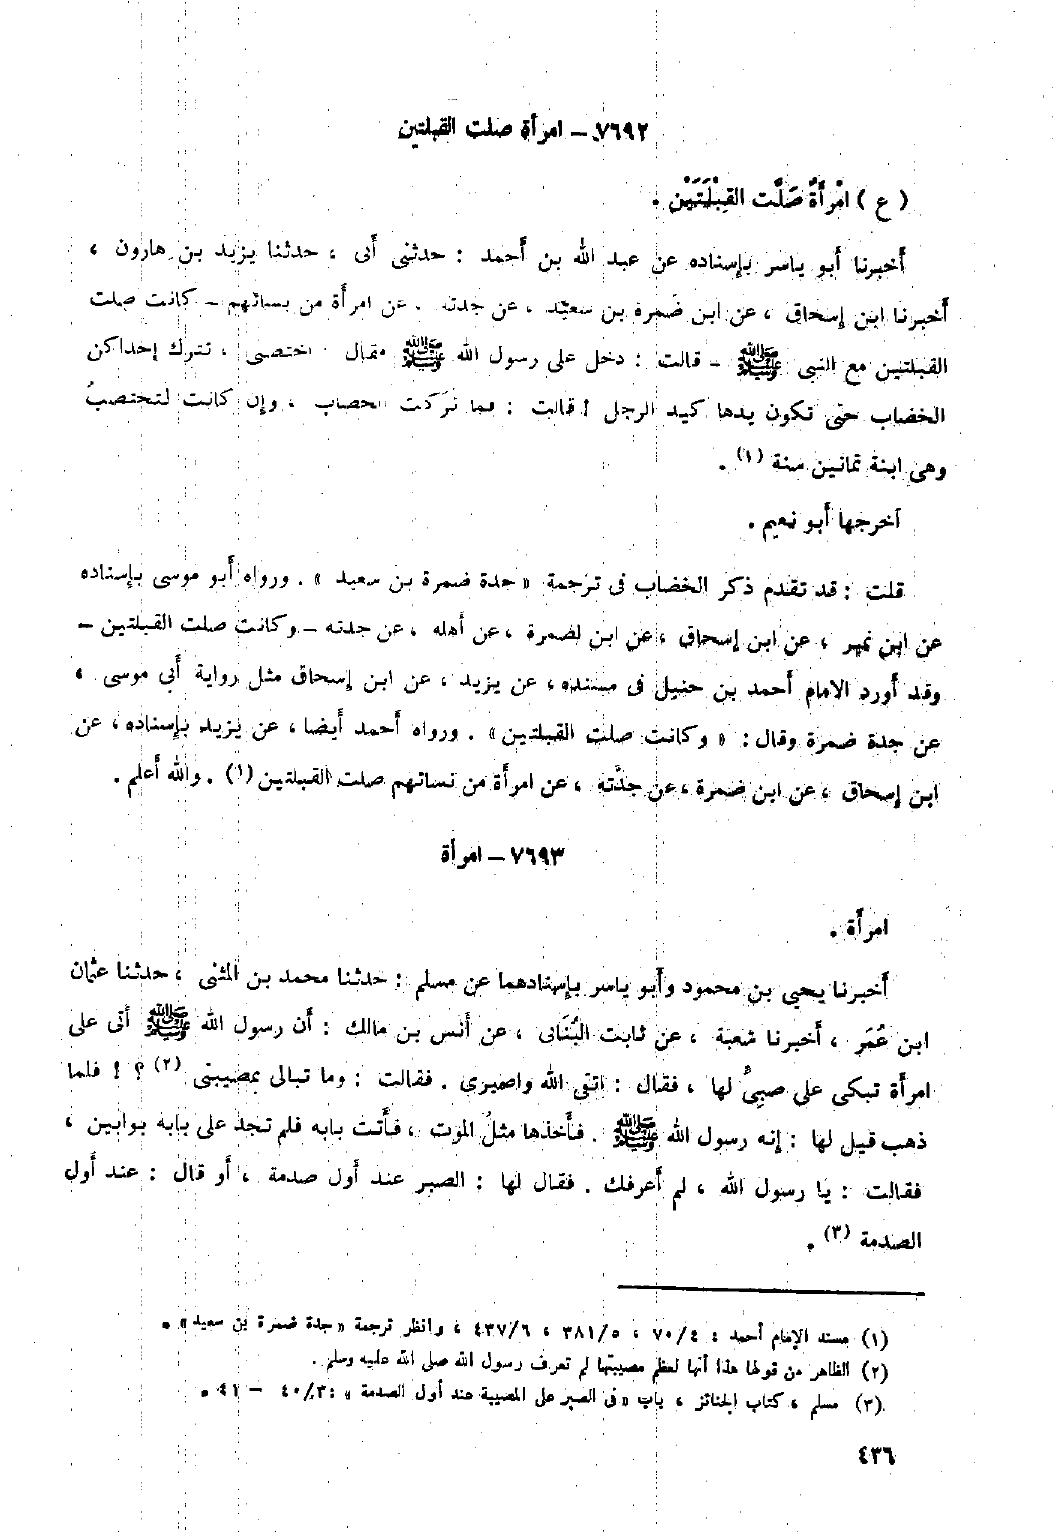 ٧٦٩٢ – امرأة صلت القبلتين
( ع ) امْرأَةٌ صَلَّت القِبْلَتَيْن .
أخبرنا أبو ياسر بإسناده عن عبد الله بن أحمد : حدثنى أبى ، حدثنا يزيد بن هارون ،
أخبرنا ابن إسحاق ، عن ابن ضَمرة بن سعيد ، عن جدته . عن امرأة من نسائهم – كانت صلت
القبلتين مع النبى ﷺ – قالت : دخل على رسول الله ﷺ فقال اختضبى ، تترك إحداكن
الخضاب حتى تكون يدها كيد الرجل ! قالت : فما تركت الخضاب ، وإن كانت لتختضبُ
وهى ابنة ثمانين سنة (١) .
أخرجها أبو نعيم .
قلت : قد تقدم ذكر الخضاب فى ترجمة « جدة ضمرة بن سعيد » . ورواه أبو موسى بإسناده
عن ابن نمير ، عن ابن إسحاق ، عن ابن لضمرة ، عن أهله ، عن جدته – وكانت صلت القبلتين –
وقد أورد الامام أحمد بن حنبل فى مسنده ، عن يزيد ، عن ابن إسحاق مثل رواية أبي موسى ،
عن جدة ضمرة وقال : « وكانت صلت القبلتين » . ورواه أحمد أيضا ، عن يزيد بإسناده ، عن
ابن إسحاق ، عن ابن ضمرة ، عن جدَّته ، عن امرأة من نسائهم صلت القبلتين (١) . والله أعلم .
٧٦٩٣ – امرأة
امرأة .
أخبرنا يحيي بن محمود وأبو ياسر بإسنادهما عن مسلم : حدثنا محمد بن المثنى ، حدثنا عثمان
ابن عُمَر ، أخبرنا شعبة ، عن ثابت البُنَانى ، عن أنس بن مالك : أن رسول الله ﷺ أتى على
امرأة تبكى على صبىٍّ لها ، فقال : اتقى الله واصبرى . فقالت : وما تبالى بمصيبتى (٢) ؟ ! فلما
ذهب قيل لها : إنه رسول الله ﷺ . فأخذها مثلُ الموت ، فأتت بابه فلم تجد على بابه بوابين ،
فقالت : يا رسول الله ، لم أعرفك . فقال لها : الصبر عند أول صدمة ، أو قال : عند أول
الصدمة (٣) .
(١) مسند الإمام أحمد : ٤/ ٧٠ ، ٥/ ٣٨١ ، ٦/ ٤٣٧ ، وانظر ترجمة «جدة ضمرة بن سعيد» .
(٢) الظاهر من قولها هذا أنها لعظم مصيبتها لم تعرف رسول الله صلى الله عليه وسلم .
(٣) مسلم ، كتاب الجنائز ، باب « فى الصبر على المصيبة عند أول الصدمة » : ٣/ ٤٠ – ٤١ .
٤٣٦